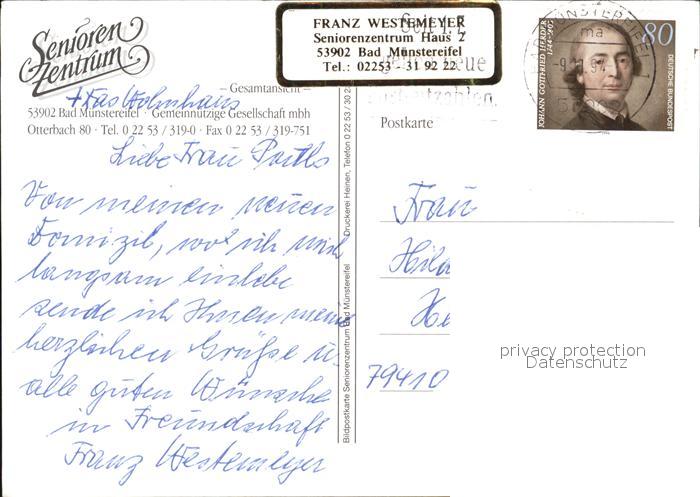 Senioren
Zentrum
Gesamtansicht –
+ Das Wohnhaus
53902 Bad Münstereifel · Gemeinnützige Gesellschaft mbh
Otterbach 80 · Tel. 0 22 53 / 319-0 · Fax 0 22 53 / 319-751
FRANZ WESTEMEYER
Seniorenzentrum Haus 2
53902 Bad Münstereifel
Tel.: 02253 - 31 92 22
Postkarte
MÜNSTEREIFEL
ma
80
JOHANN GOTTFRIED HERDER
1744-1803
DEUTSCHE BUNDESPOST
Liebe Frau
Von meinen neuen
Domizil, wo ich mich
langsam einlebe
sende ich Ihnen meine
herzlichen Grüße u.
alle guten Wünsche
in Freundschaft
Franz Westemeyer
Bildpostkarte Seniorenzentrum Bad Münstereifel Druckerei Heinen, Telefon 0 22 53 / 30 23
Frau
Hild
He
79410
privacy protection
Datenschutz